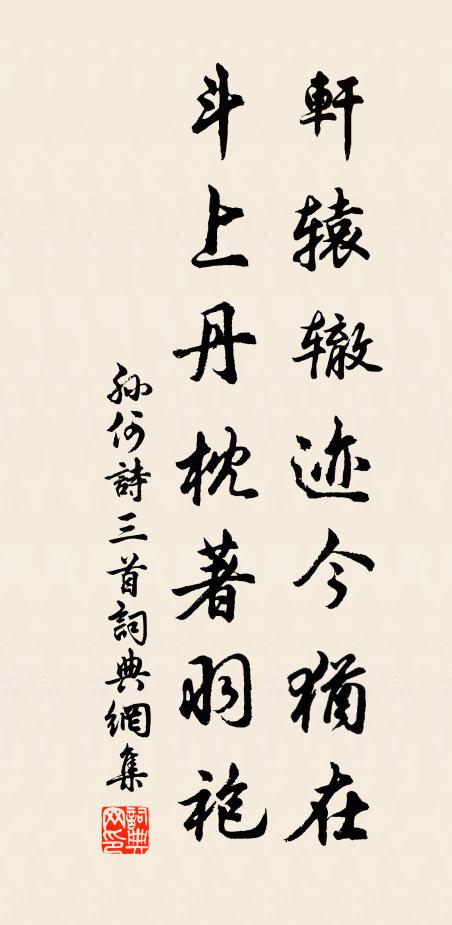 軒辕辙迹今猶在
斗上丹枕著羽袍
孙何詩三首詞典網集
詞典网印